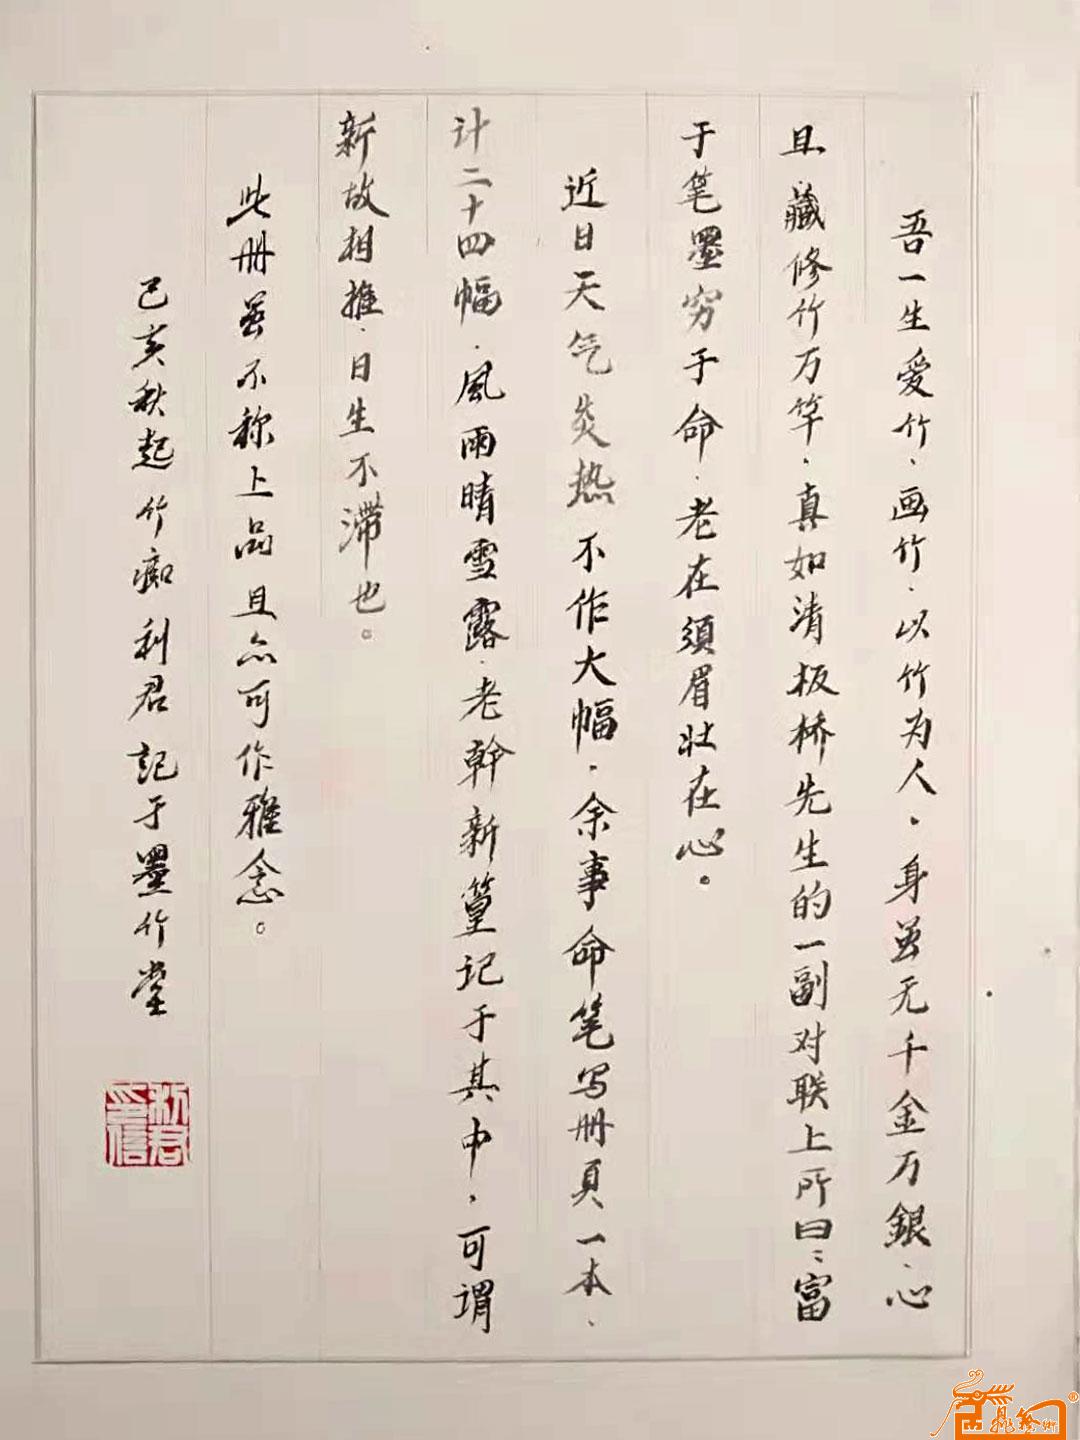 吾一生爱竹、画竹、以竹为人。身虽无千金万銀、心
且藏修竹万竿、真如清板桥先生的一副对联上所曰:富
于笔墨穷于命、老在須眉壮在心。
近日天气炎热不作大幅、余事命笔写册頁一本、
计二十四幅、風雨晴雪露、老幹新篁记于其中,可谓
新故相推、日生不滞也。
此册虽不称上品且亦可作雅念。
己亥秋起竹痴利君記于墨竹堂
利君印信